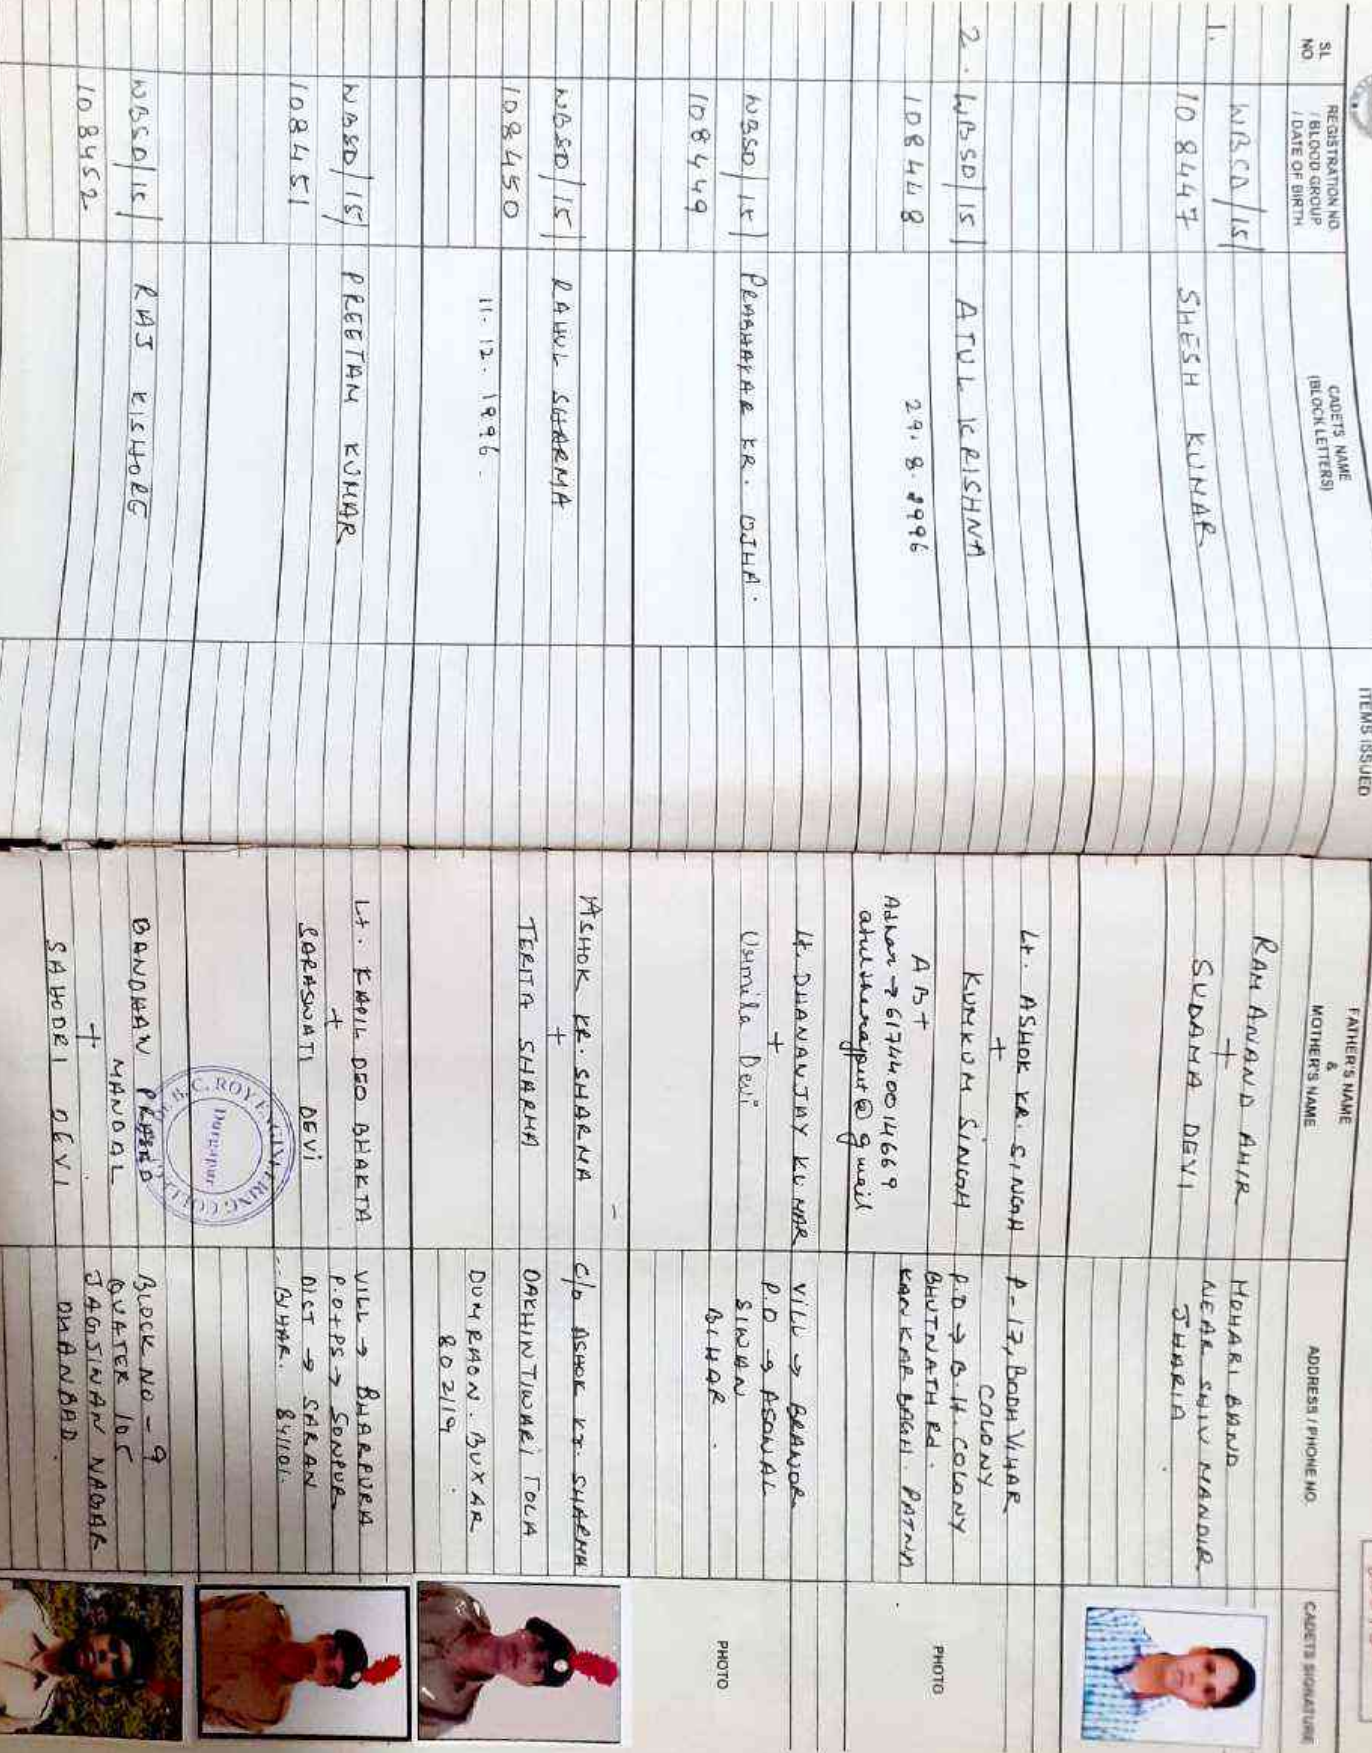 ITEMS ISSUED
SL NO
REGISTRATION NO.
/ BLOOD GROUP
/ DATE OF BIRTH
CADETS NAME
(BLOCK LETTERS)
FATHER'S NAME
&
MOTHER'S NAME
ADDRESS / PHONE NO.
CADETS SIGNATURE
1.
WBSD/15/
108447
SHESH KUMAR
RAMANAND AHIR
+
SUDAMA DEVI
MOHARI BAND
NEAR SHIV MANDIR
JHARIA
2.
WBSD/15/
108448
ATUL KRISHNA
29.8.1996
Lt. ASHOK KR. SINGH
+
KUMKUM SINGH
AB+
Adhar → 617440014669
atultherajput@gmail
P-17, BODH VIHAR
COLONY
P.O → B.H. COLONY
BHUTNATH Rd.
KANKARBAGH. PATNA
PHOTO
WBSD/15/
108449
PRABHAKAR KR. OJHA.
Lt. DHANANJAY KUMAR
+
Urmila Devi
VILL → BRANDR
P.O → ASONAL
SIWAN
BIHAR.
PHOTO
WBSD/15/
108450
RAHUL SHARMA
11.12.1996.
ASHOK KR. SHARMA
+
TERITA SHARMA
C/o ASHOK Kr. SHARMA
DAKHIN TIWARI TOLA
DUMRAON. BUXAR
802119.
WBSD/15/
108451
PREETAM KUMAR
Lt. KAPIL DEO BHAKTA
+
SARASWATI DEVI
VILL → BHARPURA
P.O+PS → SONPUR
DIST → SARAN
BIHAR. 841101.
B.C. ROY ENGINEERING COLLEGE
Durgapur
WBSD/15/
108452
RAJ KISHORE
BANDHAN PRASAD
MANDAL
+
SAHODRI DEVI
BLOCK NO-9
QUATER 105
JAGJIWAN NAGAR
DHANBAD.